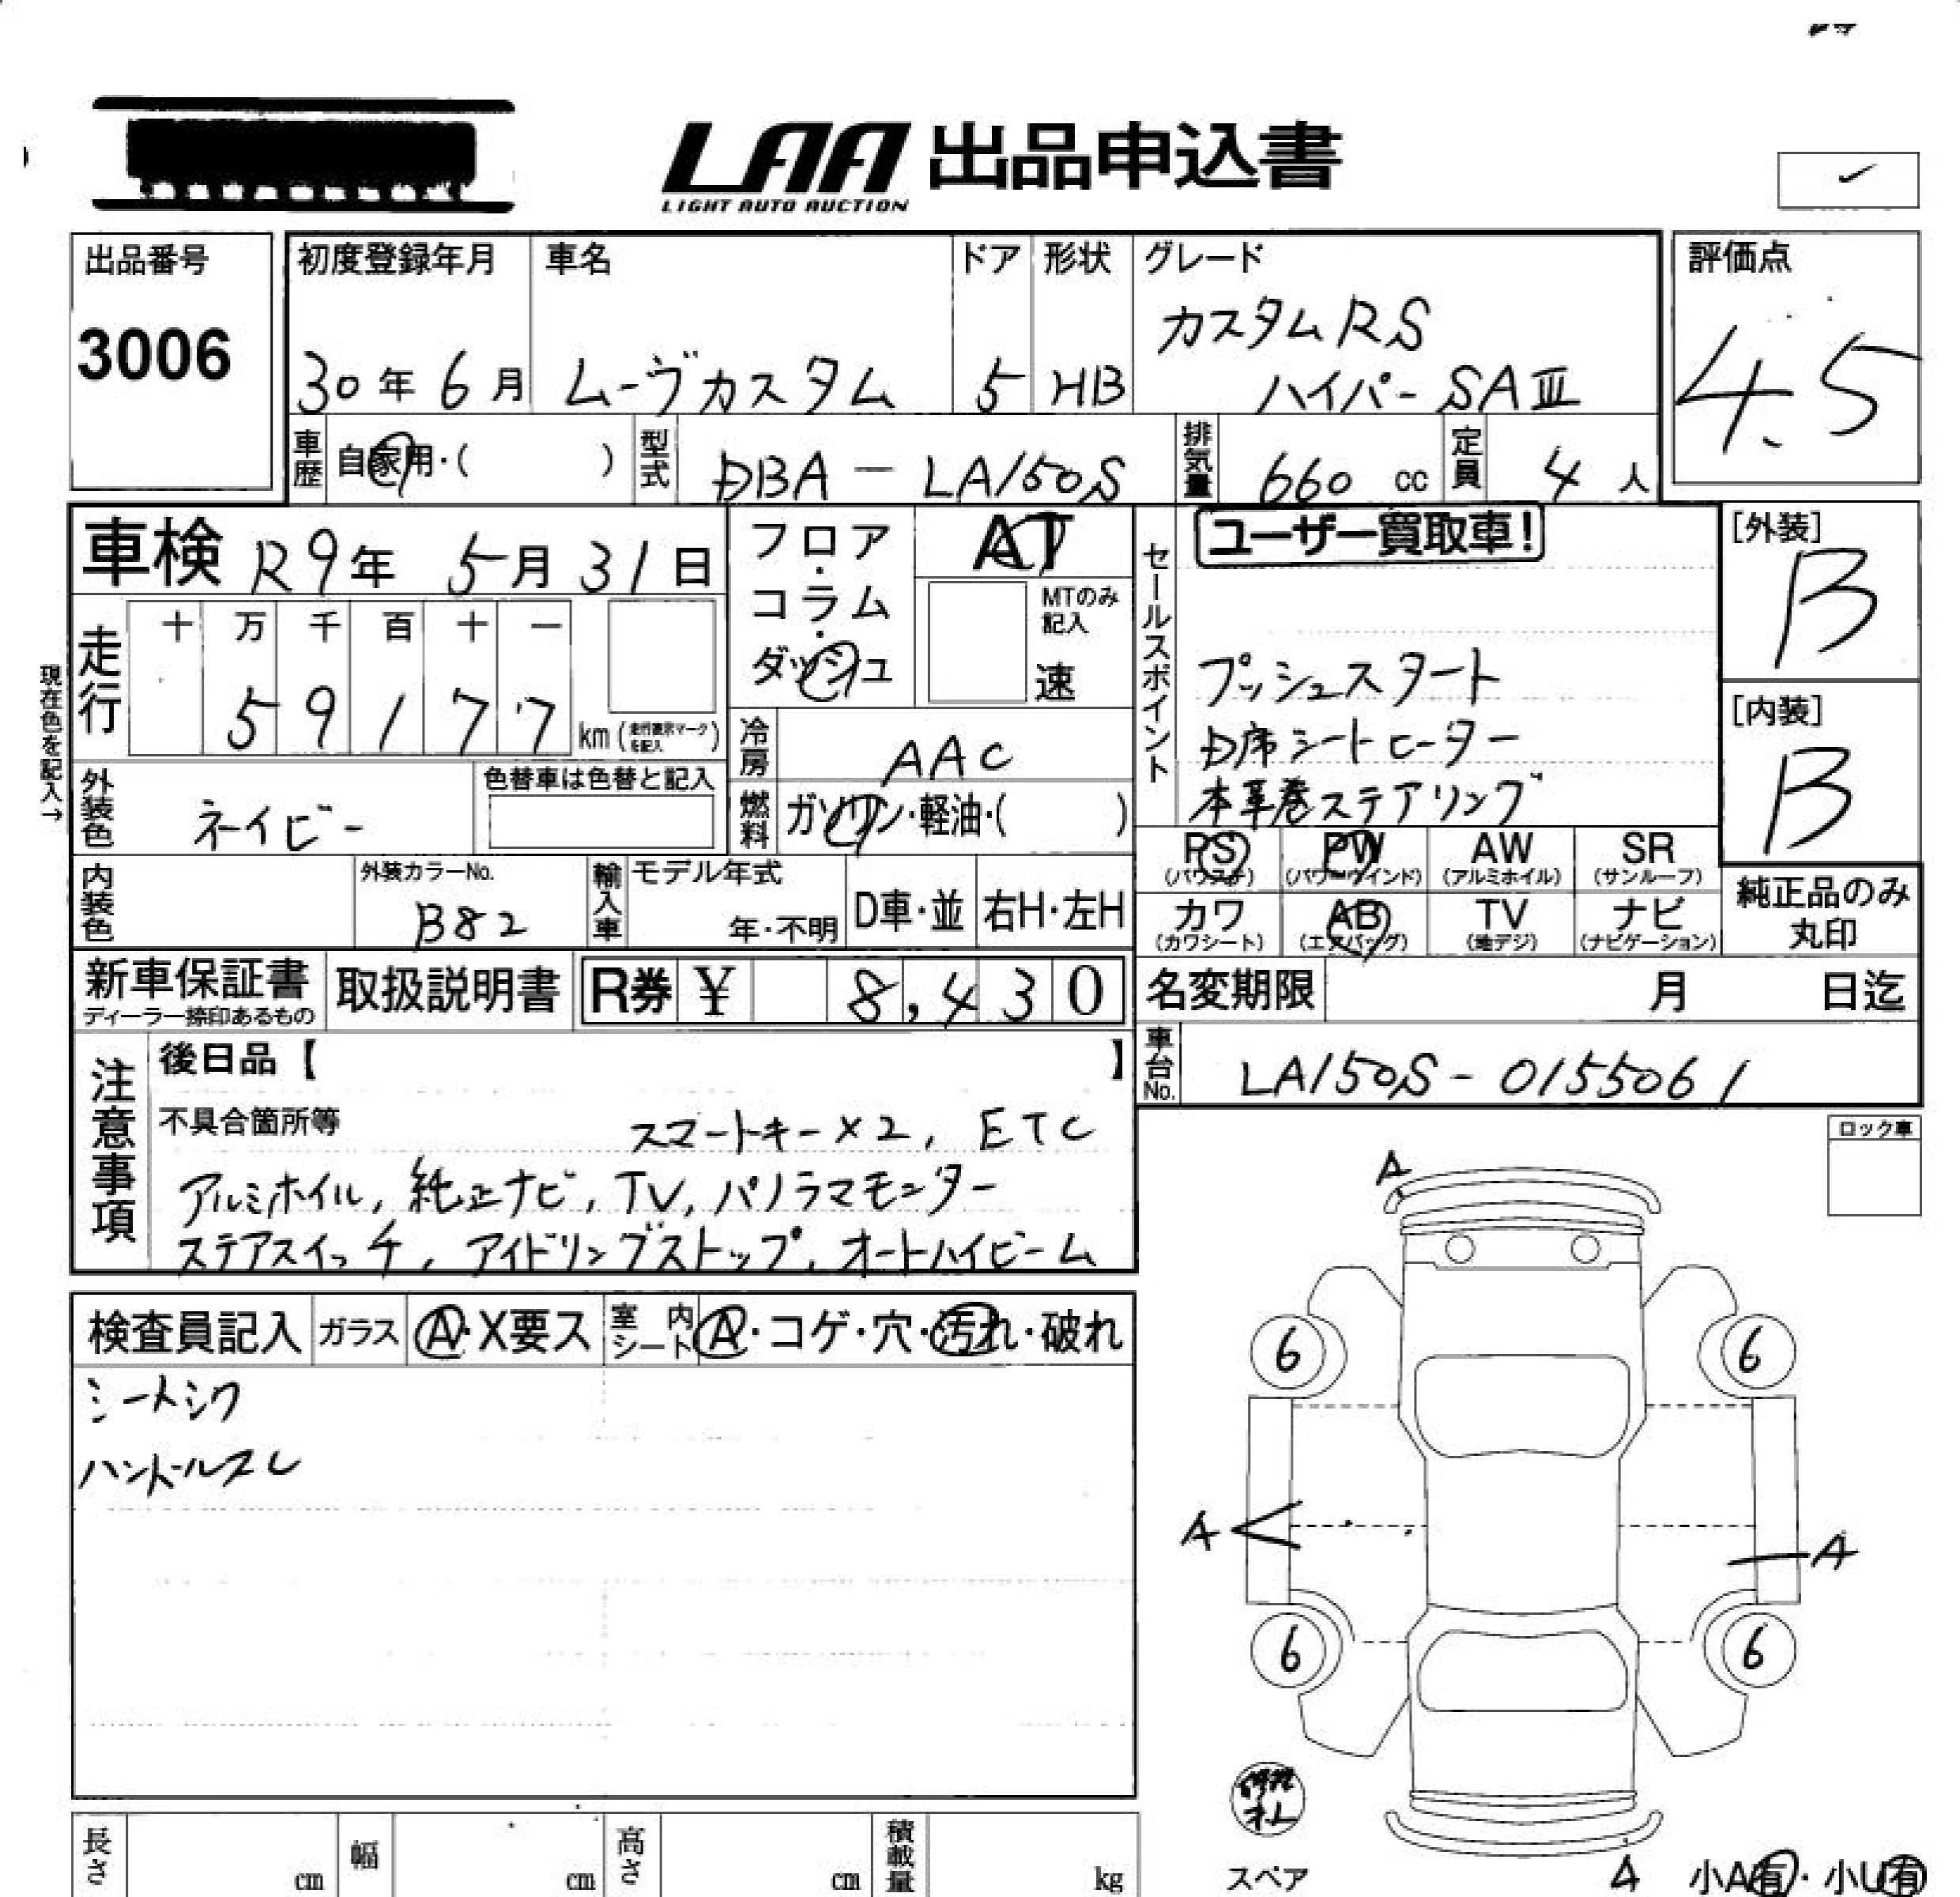 LAA 出品申込書
LIGHT AUTO AUCTION
出品番号
3006
初度登録年月
30年6月
車名
ムーヴカスタム
ドア
5
形状
HB
グレード
カスタムRS
ハイパーSAⅢ
評価点
4.5
車歴 自家用・( )
型式 DBA-LA150S
排気量 660 cc
定員 4人
車検 R9年 5月31日
走行 十 万 千 百 十 一
59177 km (走行表示マークを記入)
フロア・コラム・ダッシュ
AT
MTのみ記入
速
冷房 AAC
燃料 ガソリン・軽油・( )
現在色を記入→
外装色 ネイビー
色替車は色替と記入
内装色
外装カラーNo.
B82
輸入車 モデル年式
年・不明
D車・並
右H・左H
セールスポイント
ユーザー買取車!
プッシュスタート
D席シートヒーター
本革巻ステアリング
[外装]
B
[内装]
B
PS (パワステ) PW (パワーウインド) AW (アルミホイル) SR (サンルーフ)
カワ (カワシート) AB (エアバッグ) TV (地デジ) ナビ (ナビゲーション)
純正品のみ
丸印
新車保証書
ディーラー捺印あるもの
取扱説明書
R券 ¥ 8,430
名変期限 月 日迄
車台No. LA150S-0155061
注意事項
後日品【 】
不具合箇所等
スマートキー×2, ETC
アルミホイル, 純正ナビ, TV, パノラマモニター
ステアスイッチ, アイドリングストップ, オートハイビーム
ロック車
検査員記入 ガラス A・X要ス 室内シート A・コゲ・穴・汚れ・破れ
シートシワ
ハンドルスレ
A
6
6
A
A
6
6
スペア
A
小A有・小U有
長さ cm
幅 cm
高さ cm
積載量 kg